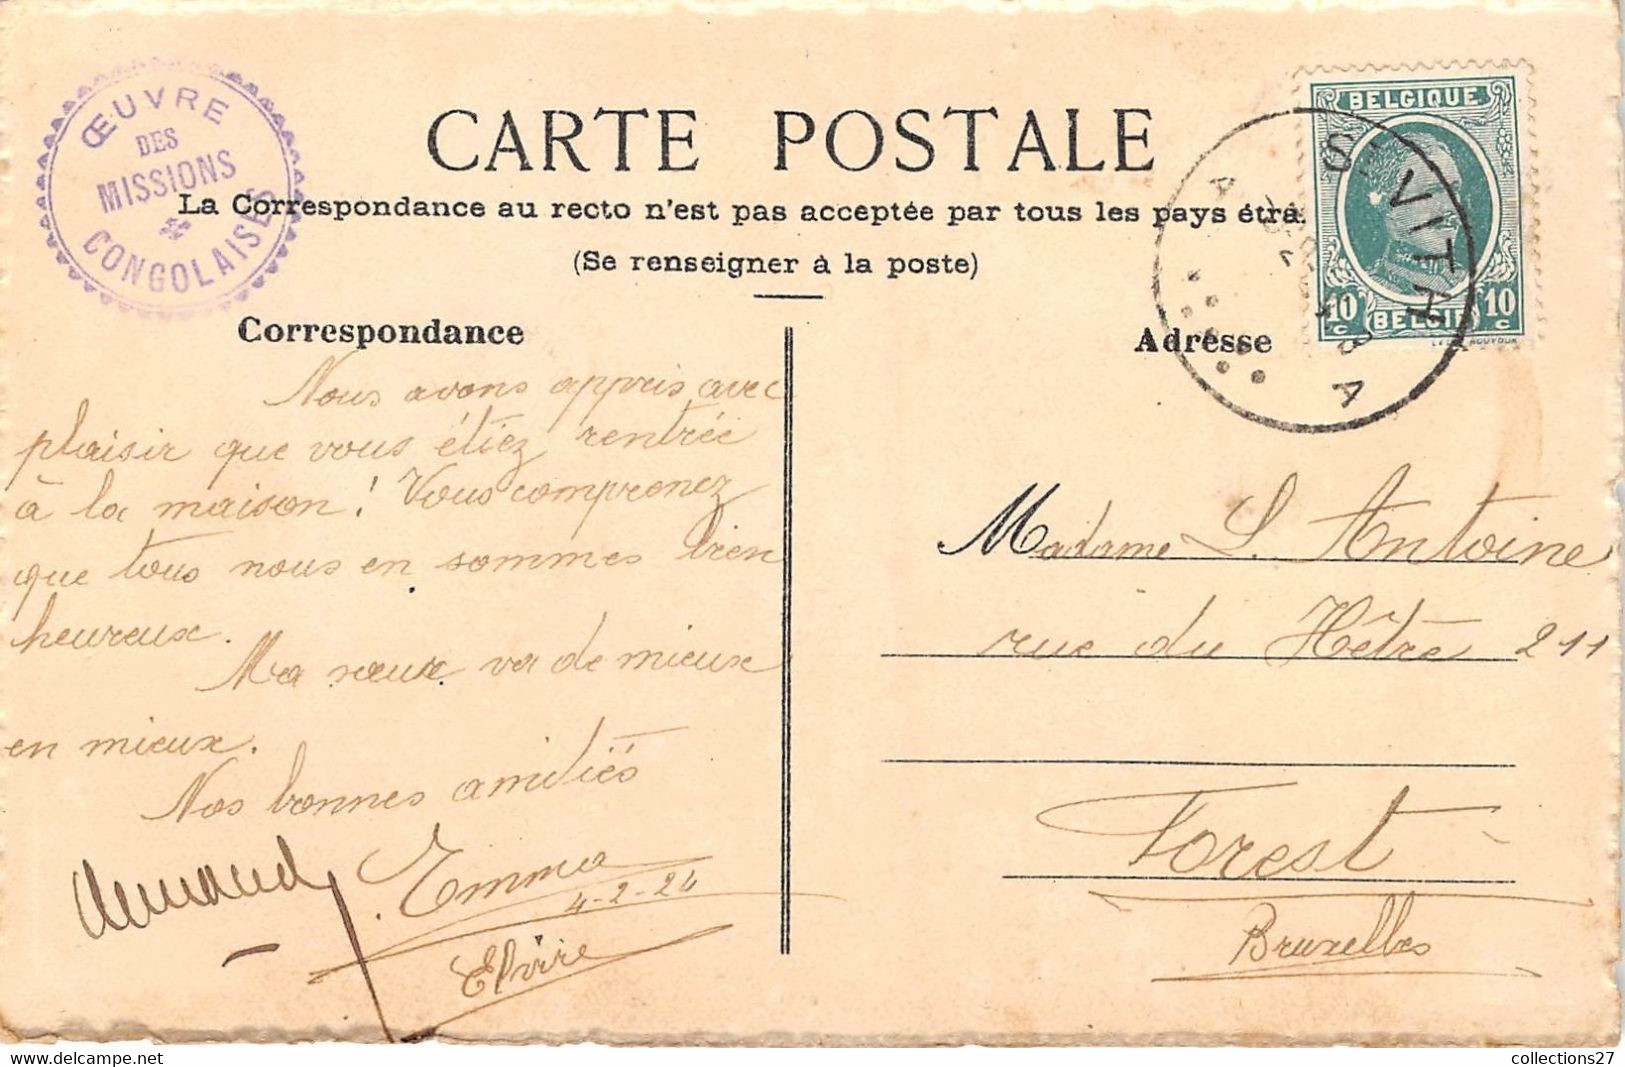 ŒUVRE
DES
MISSIONS
CONGOLAISES
CARTE POSTALE
La Correspondance au recto n'est pas acceptée par tous les pays étra
(Se renseigner à la poste)
BELGIQUE
10 c BELGIË 10 c
ST VITH
A
Correspondance
Nous avons appris avec
plaisir que vous étiez rentrée
à la maison! Vous comprenez
que tous nous en sommes bien
heureux.
Ma sœur va de mieux
en mieux.
Nos bonnes amitiés
Armand
Emma
4-2-24
Elvire
Adresse
Madame L. Antoine
rue du Hêtre 211
Forest
Bruxelles
collections27